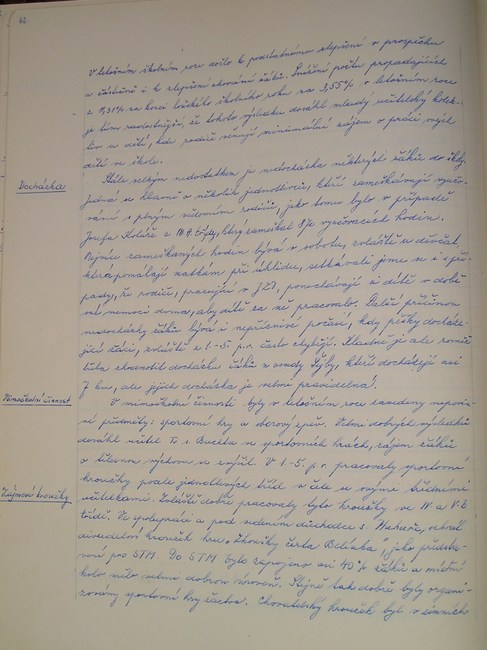 62
V letošním školním roce došlo k podstatnému zlepšení v prospěchu
a částečně i k zlepšení chování žáků. Snížení počtu propadajících
z 9,31% na konci loňského školního roku na 3,55% v letošním roce
je tím radostnější, že tohoto výsledku dosáhl mladý učitelský kolek-
tiv u dětí, kde rodiče věnují minimální zájem o práci svých
dětí ve škole.
Docházka
Stále velkým nedostatkem je nedocházka některých žáků do školy.
Jedná se hlavně o několik jednotlivců, kteří zameškávají vyučo-
vání s plným vědomím rodičů, jako tomu bylo v případě
Josefa Koláře z třídy, který zameškal vyučovacích hodin.
Nejvíce zameškaných hodin bývá v sobotu, zvláště u děvčat,
která pomáhají matkám při úklidu, setkávali jsme se i s pří-
pady, že rodiče, pracující v JZD, ponechávají si dítě v době
své nemoci doma, aby dítě za ně pracovalo. Další příčinou
nedocházky žáků bývá i nepříznivé počasí, kdy pěšky docháze-
jící žáci, zvláště z 1.-5. p.r. často chybějí. Kladně je ale nutné
tuto zhodnotit docházku žáků z osady Lhýty, kteří docházejí asi
7 km, ale jejich docházka je velmi pravidelná!
Mimoškolní činnost
V mimoškolní činnosti byly v letošním roce zavedeny nepovin-
né předměty: sportovní hry a sborový zpěv. Velmi dobrých výsledků
dosáhl učitel To s. Buceta ve sportovních hrách, zájem žáků
o tělesnou výchovu se zvýšil. V 1.-5. p.r. pracovaly sportovní
Zájmové kroužky
kroužky podle jednotlivých tříd v čele se svými třídními
učitelkami. Zvláště dobře pracovaly tyto kroužky ve IV. a V.
třídě. Ve spolupráci a pod vedením důchodce s. sehrál
divadelní kroužek hru „Chovíky čerta Belínka", jako předsta-
vení pro STM. Do STM bylo zapojeno asi 40% žáků a místní
kolo mělo velmi dobrou úroveň. Stejně tak dobře byly organi-
zovány sportovní hry žactva. Chovatelský kroužek byl v zimních